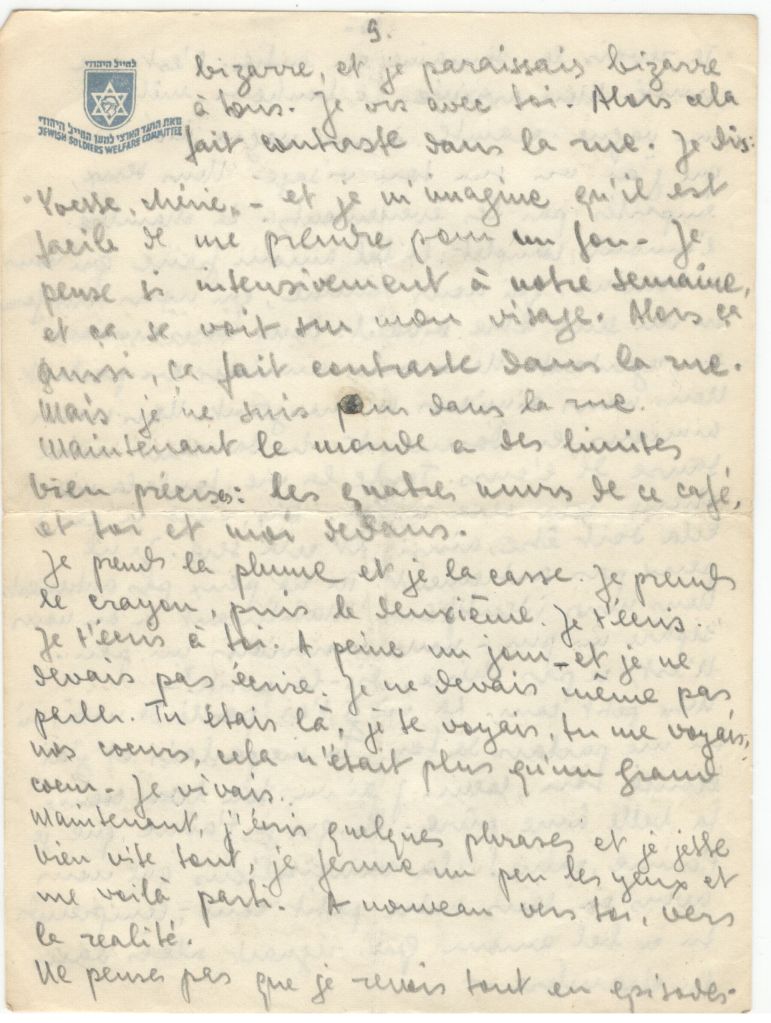 9.
לחייל היהודי
מאת הועד הארצי למען החייל היהודי
JEWISH SOLDIERS WELFARE COMMITTEE
bizarre, et je paraissais bizarre
à tous. Je vis avec toi. Alors cela
fait contraste dans la rue. Je dis:
chérie, - et je m'imagine qu'il est
facile de me prendre pour un fou - Je
pense si intensivement à notre semaine,
et ça se voit sur mon visage. Alors ça
aussi, ça fait contraste dans la rue.
Mais je ne suis plus dans la rue.
Maintenant le monde a des limites
bien précises: les quatres murs de ce café,
et toi et moi dedans.
Je prends la plume et je la casse. Je prends
le crayon, puis le deuxième. Je t'écris.
Je t'écris à toi. A peine un jour - et je ne
devais pas écrire. Je ne devais même pas
parler. Tu étais là, je te voyais, tu me voyais,
nos coeurs, cela n'était plus qu'un grand
coeur - Je vivais.
Maintenant, j'écris quelques phrases et je jette
bien vite tout, je ferme un peu les yeux et
me voilà parti. A nouveau vers toi, vers
la realité.
Ne penses pas que je revis tout en episodes-